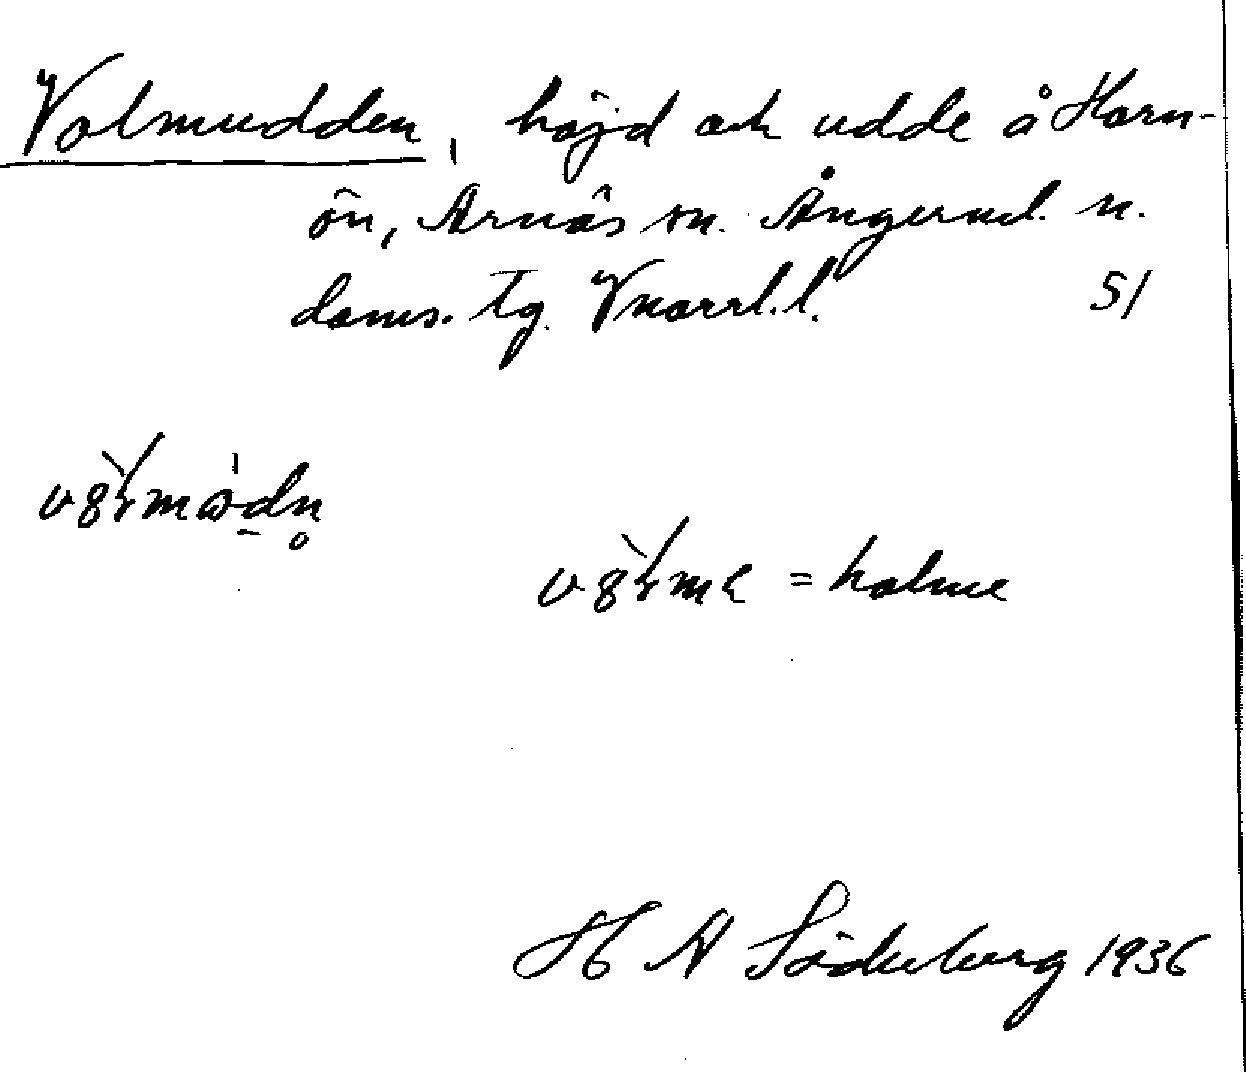 Volmudden, höjd och udde å Horn-
ön, Arnäs sn. Ångerml. n.
doms. tg. Vnorrl. l. 51
holme
H N Söderberg 1936